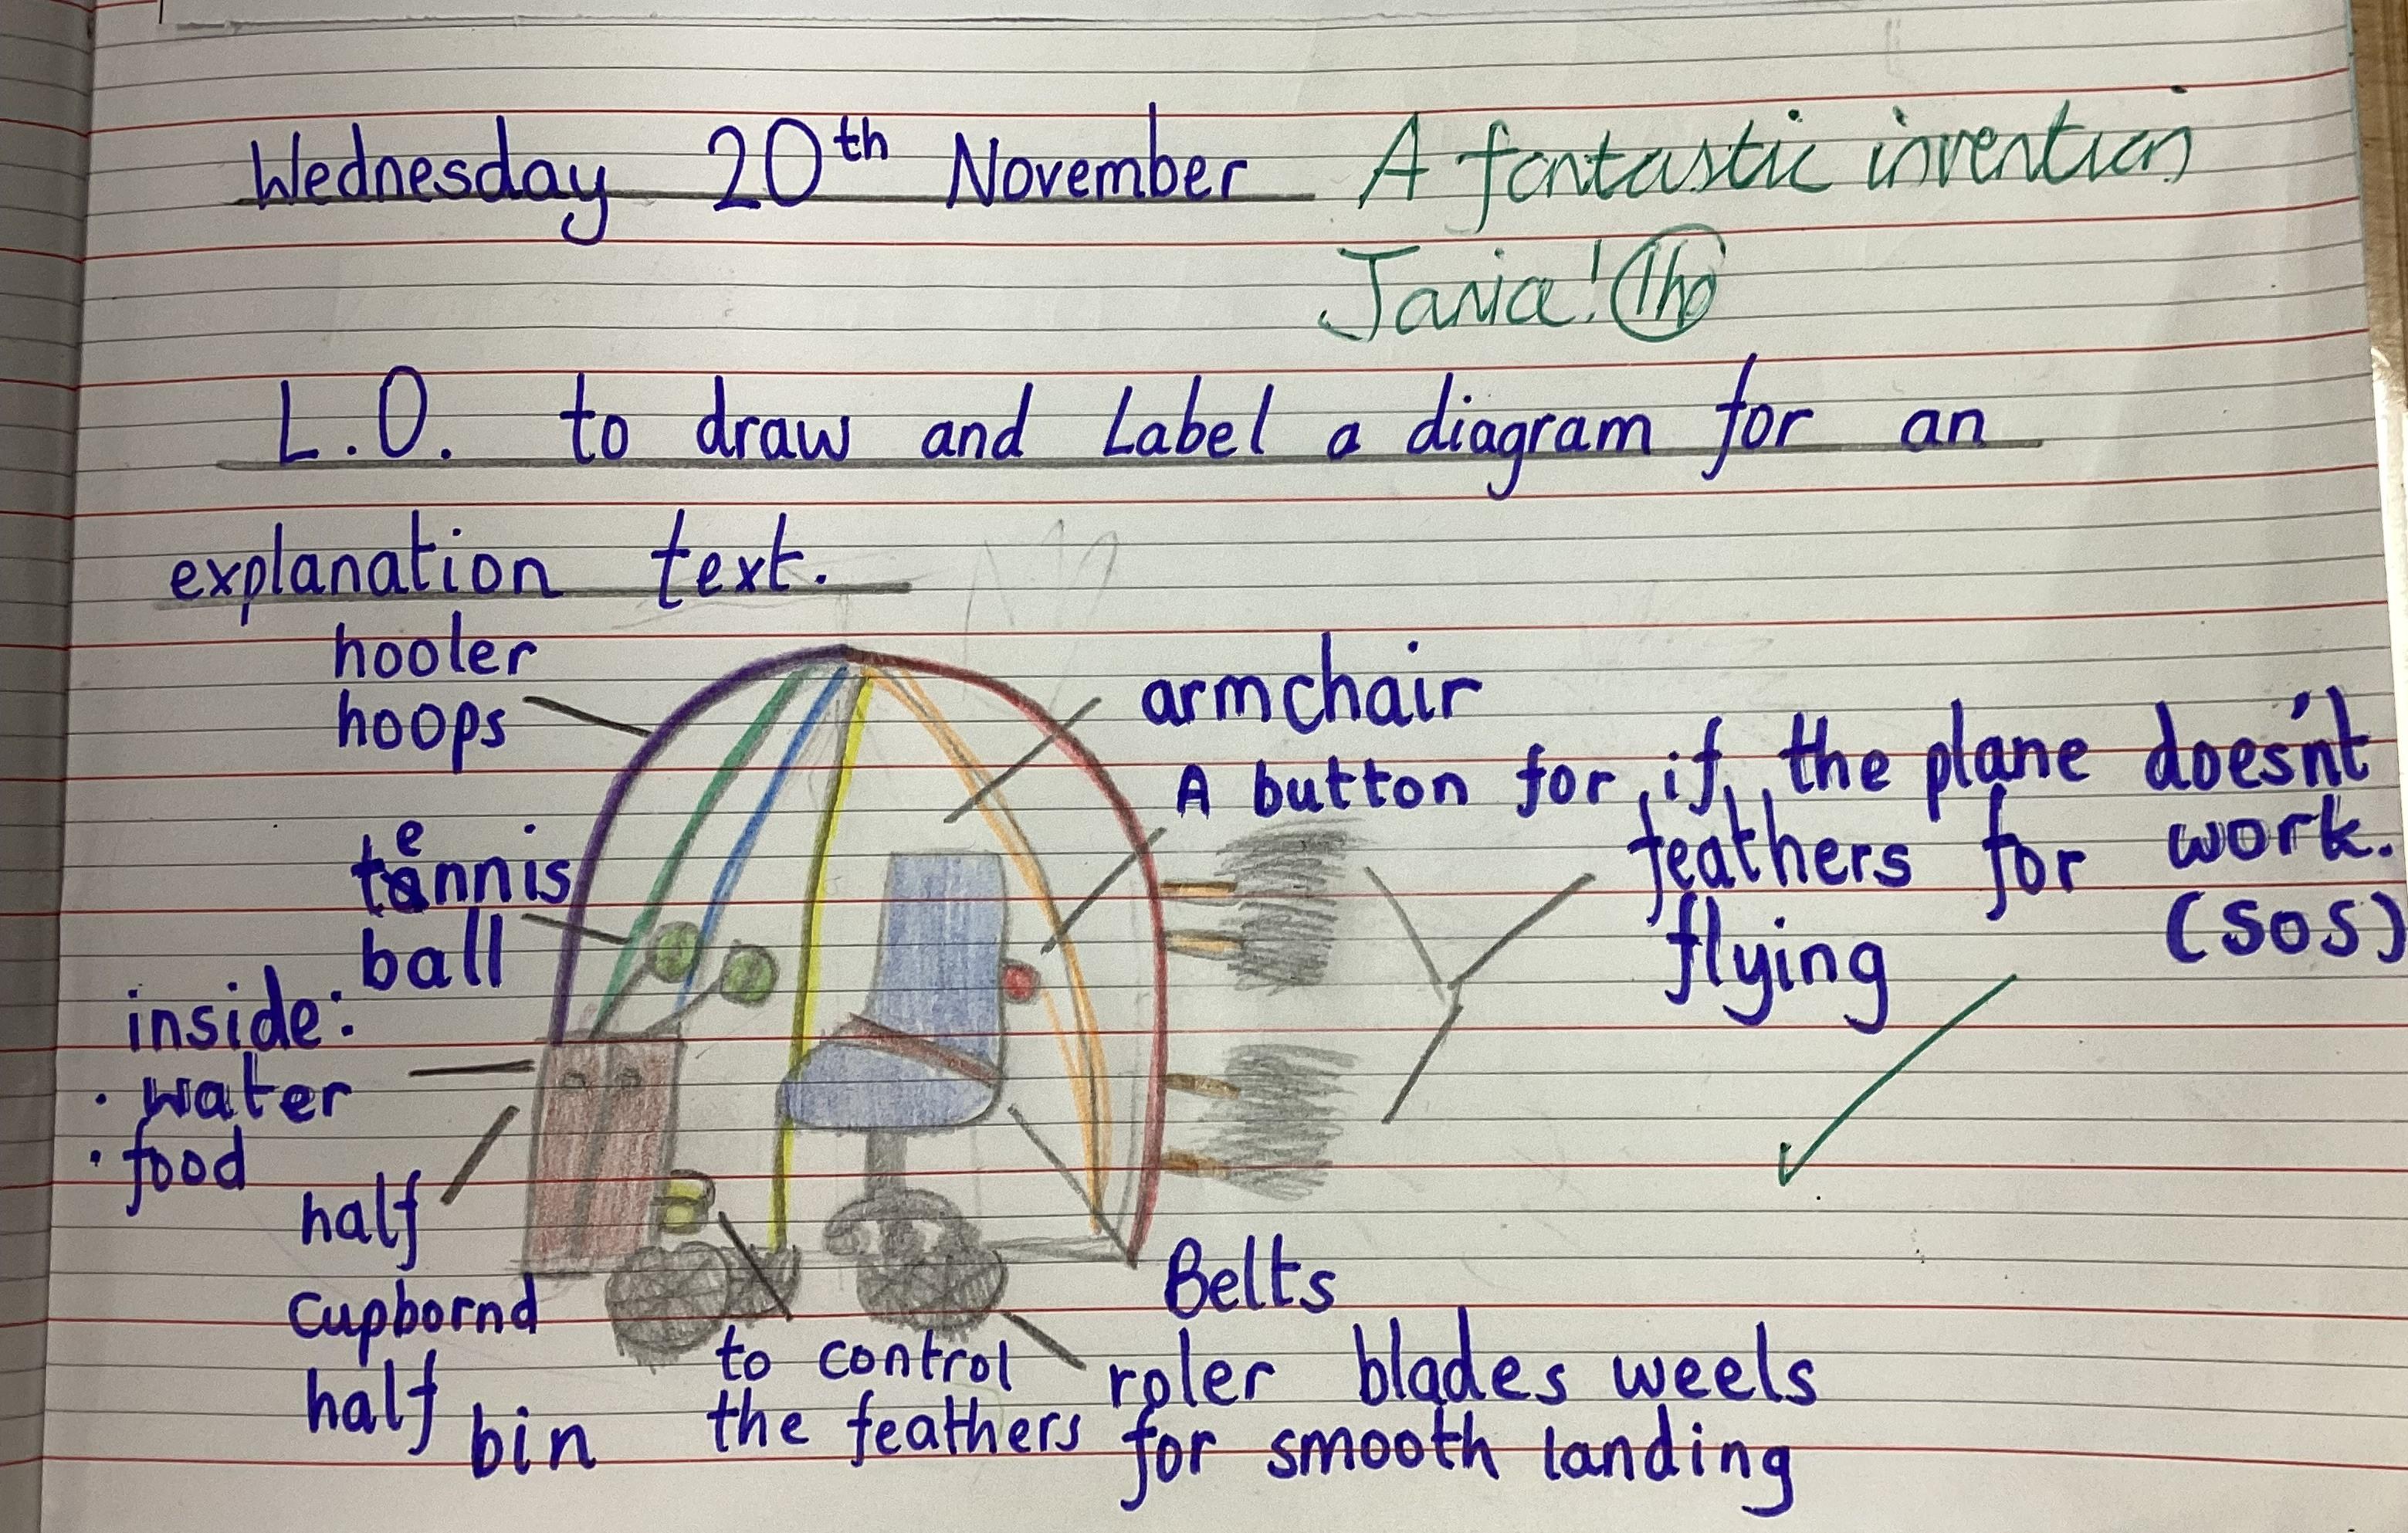 Wednesday 20th November
A fantastic invention
Jania!
L.O. to draw and Label a diagram for an
explanation text.
hooler
hoops
armchair
A button for if the plane does'nt
work.
(SOS)
feathers for
flying
tennis
ball
inside:
· water
· food
half
Cupbornd
half bin
to control
the feathers
Belts
roler blades weels
for smooth landing